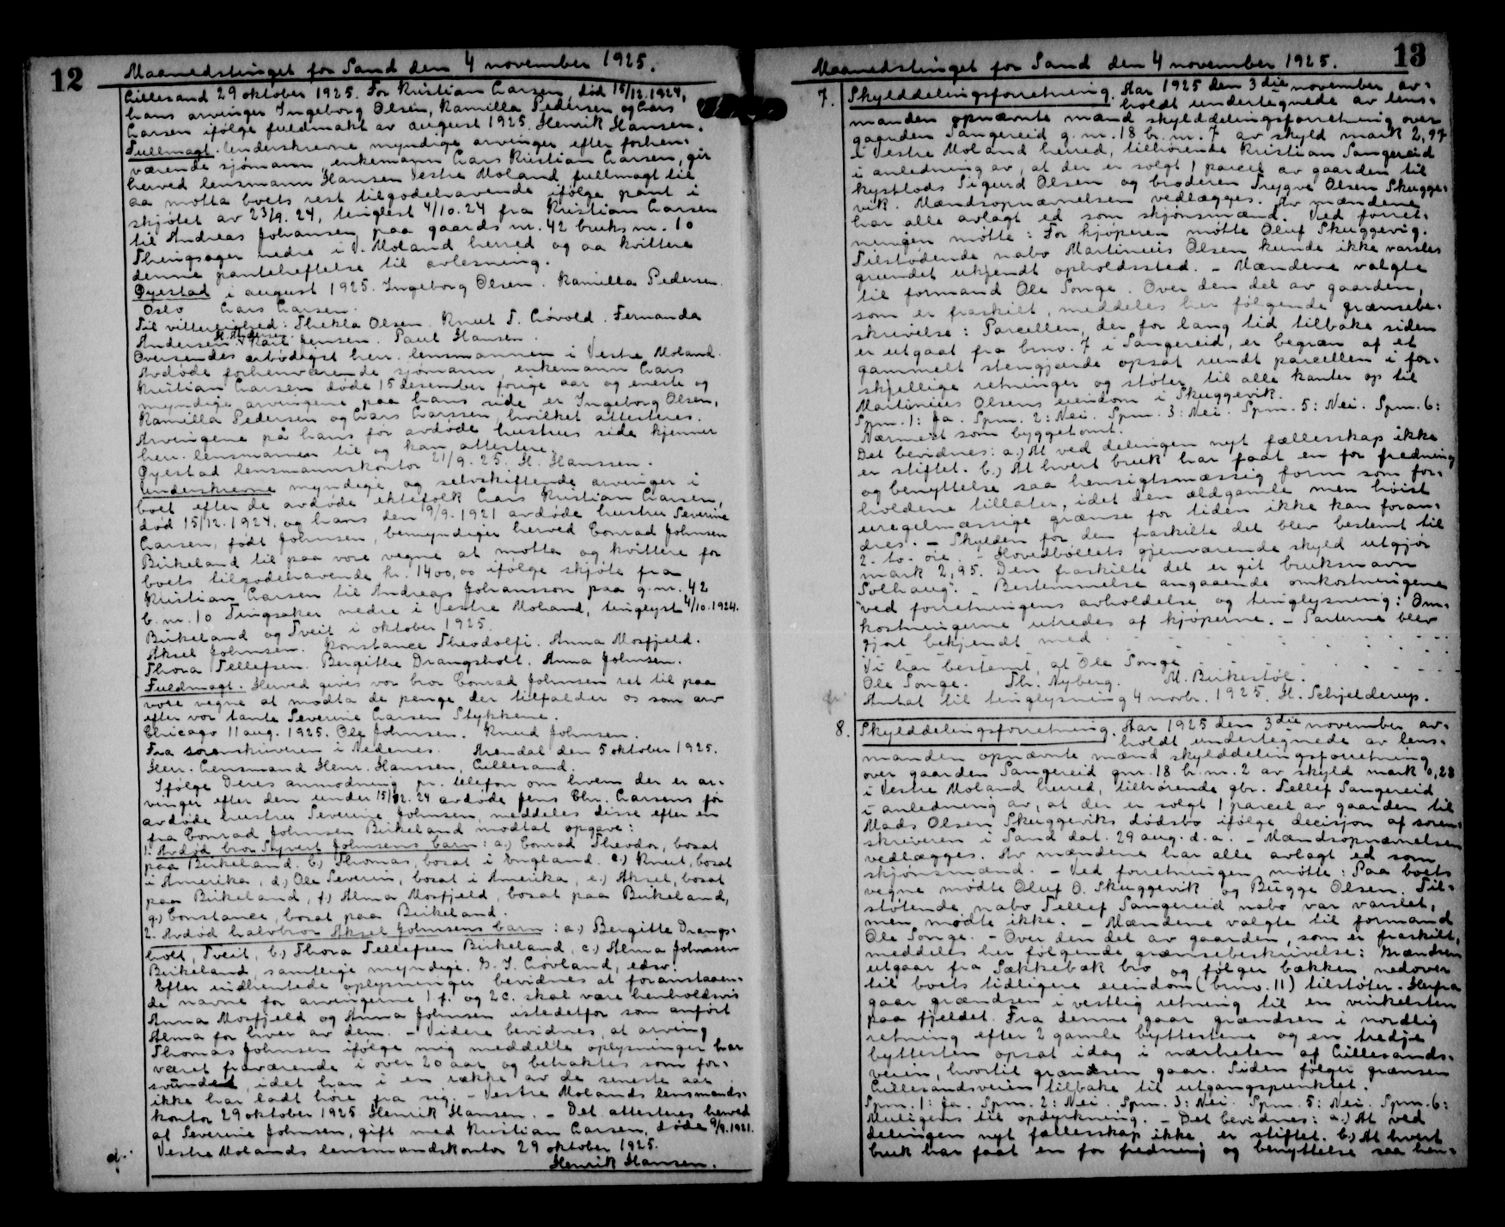 12
Maanedstinget for Sand den 4 november 1925.
Lillesand 29 oktober 1925. For Kristian Larsen, død 15/12.1924,
hans arvinger Ingeborg Olsen, Kamilla Pedersen og Lars
Larsen ifølge fuldmakt av august 1925. Henrik Hansen.
Fullmagt. Underskrevne myndige arvinger efter forhen-
værende sjømann, enkemann Lars Kristian Larsen, gir
herved lensmann Hansen Vestre Moland fullmagt til
aa motta boets rest tilgodehavende ifølge pant i
skjøtet av 23/9.24, tinglest 4/10.24 fra Kristian Larsen
til Andreas Johansen paa gaards nr. 42 bruks nr. 10
Thingsager nedre i V. Moland herred og aa kvittere
denne panteheftelse til avlesning.
Øyestad i august 1925. Ingeborg Olsen. Kamilla Pedersen.
Oslo Lars Larsen.
Til vitterlighed: Thekla Olsen. Knut T. Løvold. Fernanda
Andersen. Karl Jensen. Paul Hansen.
Oversendes ærbødigst herr. lensmannen i Vestre Moland.
Avdøde forhenværende sjømann, enkemann Lars
Kristian Larsen døde 15 desember forige aar og eneste og
myndige arvingene paa hans side er Ingeborg Olsen,
Kamilla Pedersen og Lars Larssen, hvilket attesteres.
Arvingene på hans før avdøde hustrus side kjenner
herr. lensmannen til og kan attestere.
Øyestad lensmannskontor 21/9.25. H. Hanssen.
Underskrevne myndige og selvskiftende arvinger i
boet efter de avdøde ektefolk Lars Kristian Larsen,
død 15/12.1924. og hans den 9/9.1921 avdøde hustru Severine
Larsen, født Johnsen, bemyndiger herved Conrad Johnsen
Birkeland til paa vore vegne at motta og kvittere for
boets tilgodehavende kr. 1400,00 ifølge skjøte fra
Kristian Larsen til Andreas Johansson paa g.nr. 42
b.nr. 10 Tingsaker nedre i Vestre Moland, tinglyst 4/10.1924.
Birkeland og Tveit i oktober 1925.
Aksel Johnsen. Konstance Theodolfi. Anna Mosfjeld.
Thora Tellefsen. Bergitte Drangsholt. Anna Johnsen.
Fuldmagt. Herved gives vor bror Conrad Johnsen ret til paa
vore vegne at modta de penge der tilfalder os som arv
efter vor tante Severine Larsen Stykkene.
Chicago 11 aug. 1925. Ole Johnsen. Knud Johnsen.
Fra sorenskriveren i Nedenes. Arendal den 5 oktober 1925.
Herr. Lensmand Henr. Hanssen, Lillesand.
Ifølge Deres anmodning pr. telefon om hvem der er ar-
vinger efter den under 15/12.24 avdøde Jens Chr. Larsens før
avdøde hustru Severine Johnsen, meddeles disse efter en
fra Conrad Johnsen Birkeland modtat opgave:
1. Avdød bror Syvert Johnsens barn: a.) Conrad Theodor, bosat
paa Birkeland, b.) Thomas, bosat i England. c.) Knut, bosat
i Amerika, d.) Ole Severin, bosat i Amerika, e.) Aksel, bosat
paa Birkeland, f.) Alma Mosfjeld, bosat paa Birkeland,
g.) Constance, bosat paa Birkeland.
2. Avdød halvbror Aksel Johnsens barn: a.) Bergitte Drangs-
holt, Tveit, b.) Thora Tellefsen Birkeland, c.) Alma Johnsen
Birkeland, samtlige myndige. G. T.Løvland, edsv.
Efter indhentede oplysninger bevidnes at foranstaaen-
de navne for arvingerne 1 f. og 2 c. skal være henholdsvis
Anna Mosfjeld og Anna Johnsen istedetfor som anført
Alma for hver av dem. - Videre bevidnes, at arving
Thomas Johnsen ifølge mig meddelte oplysninger har
været fraværende i over 20 aar og betraktes som for-
svundet, idet han i en række av de seneste aar
ikke har ladt høre fra sig. - Vestre Molands lensmands-
kontor 29 oktober 1925 Henrik Hansen. - Det attesteres herved
at Severine Johnsen, gift med Kristian Larsen, døde 9/9.1921.
Vestre Molands lensmandskontor 29 oktober 1925.
Henrik Hansen.
13
Maanedstinget for Sand den 4 november 1925.
7. Skylddelingsforretning. Aar 1925 den 3die november av-
holdt undertegnede av lens-
manden opnævnte mænd skylddelingsforretning over
gaarden Sangereid g.nr. 18 br.nr. 7 av skyld mark 2,97
i Vestre Moland herred, tilhørende Kristian Sangereid
i anledning av, at der er solgt 1 parcel av gaarden til
kystlods Sigurd Olsen og broderen Trygve Olsen Skugge-
vik. Mændsopnævnelsen vedlægges. Av mændene
har alle avlagt ed som skjønsmænd. Ved forret-
ningen møtte: For kjøperen møtte Oluf Skuggevig.
Tilstødende nabo Martinius Olsen kunde ikke varsles
grundet ukjendt opholdssted. - Mændene valgte
til formand Ole Songe. Over den del av gaarden,
som er fraskilt, meddeles her følgende grænsebe-
skrivelse: Parcellen, der for lang tid tilbake siden
er utgaat fra brno. 7 i Sangereid, er begræn af et
gammelt stengjærde opsat rundt parcellen i for-
skjellige retninger og støter til alle kanter op til
Martinius Olsens eiendom i Skuggevik.
Spm. 1: Ja. Spm. 2: Nei. Spm. 3: Nei. Spm. 5: Nei. Spm. 6:
Nærmest som byggetomt.
Det bevidnes: a.) At ved delingen nyt fællesskap ikke
er stiftet. b.) At hvert bruk har faat en for fredning
og benyttelse saa hensigtsmæssig form som for-
holdene tillater, idet den ældgamle men høist
uregelmæssige grænse for tiden ikke kan foran-
dres. - Skylden for den fraskilte del blev bestemt til
2 - to - øre. - Hovedbøllets gjenværende skyld utgjør
mark 2,95. Den fraskilte del er git bruksnavn
"Solhaug." - Bestemmelse angaaende omkostningene
ved forretningens avholdelse og tinglysning: Om-
kostningerne utredes af kjøperne. - Parterne blev
gjort bekjendt med - - - - - - -
Vi har bestemt, at Ole Songe - - - - - -
Ole Songe. Th. Nyberg. M. Birkestøl.
Antat til tinglysning 4 novbr. 1925. H. Schjelderup.
8. Skylddelingsforretning. Aar 1925 den 3die november av-
holdt undertegnede av lens-
manden opnævnte mænd skylddelingsforretning
over gaarden Sangereid gnr. 18 br.nr. 2 av skyld mark 0,28
i Vestre Moland herred, tilhørende gbr. Tellef Sangereid
i anledning av, at der er solgt 1 parcel av gaarden til
Mads Olsen Skuggeviks dødsbo ifølge decisjon af soren-
skriveren i Sand dat. 29 aug. d.a. - Mændsopnævnelsen
vedlægges. Av mændene har alle avlagt ed som
skjønsmænd. - Ved forretningen møtte: Paa boets
vegne mødte Oluf O. Skuggevik og Bügge Olsen. Til-
støtende nabo Tellef Sangereid nabo var varslet,
men mødte ikke. - Mændene valgte til formand
Ole Songe. - Over den del av gaarden, som er fraskilt,
meddeles her følgende grænsebeskrivelse: Grændsen
utgaar fra Sækkebæk bro og følger bækken nedover
til boets tidligere eiendom (brno. 11) tilstøter. Herfra
gaar grændsen i vestlig retning til en vinkelsten
paa fjeldet. Fra denne gaar grændsen i nordlig
retning efter 2 gamle byttestene og en tredje
byttesten opsat idag i nærheten af Lillesands-
veien, hvortil grænsen gaar. Siden følger grænsen
Lillesandsveien tilbake til utgangspunktet.
Spm. 1: Ja. Spm. 2: Nei. Spm. 3: Nei. Spm. 5: Nei. Spm. 6:
Muligens til opdyrkning. - Det bevidnes: a.) At ved
delingen nyt fællesskap ikke er stiftet. b.) At hvert
bruk har faat en for fredning og benyttelse saa hen-